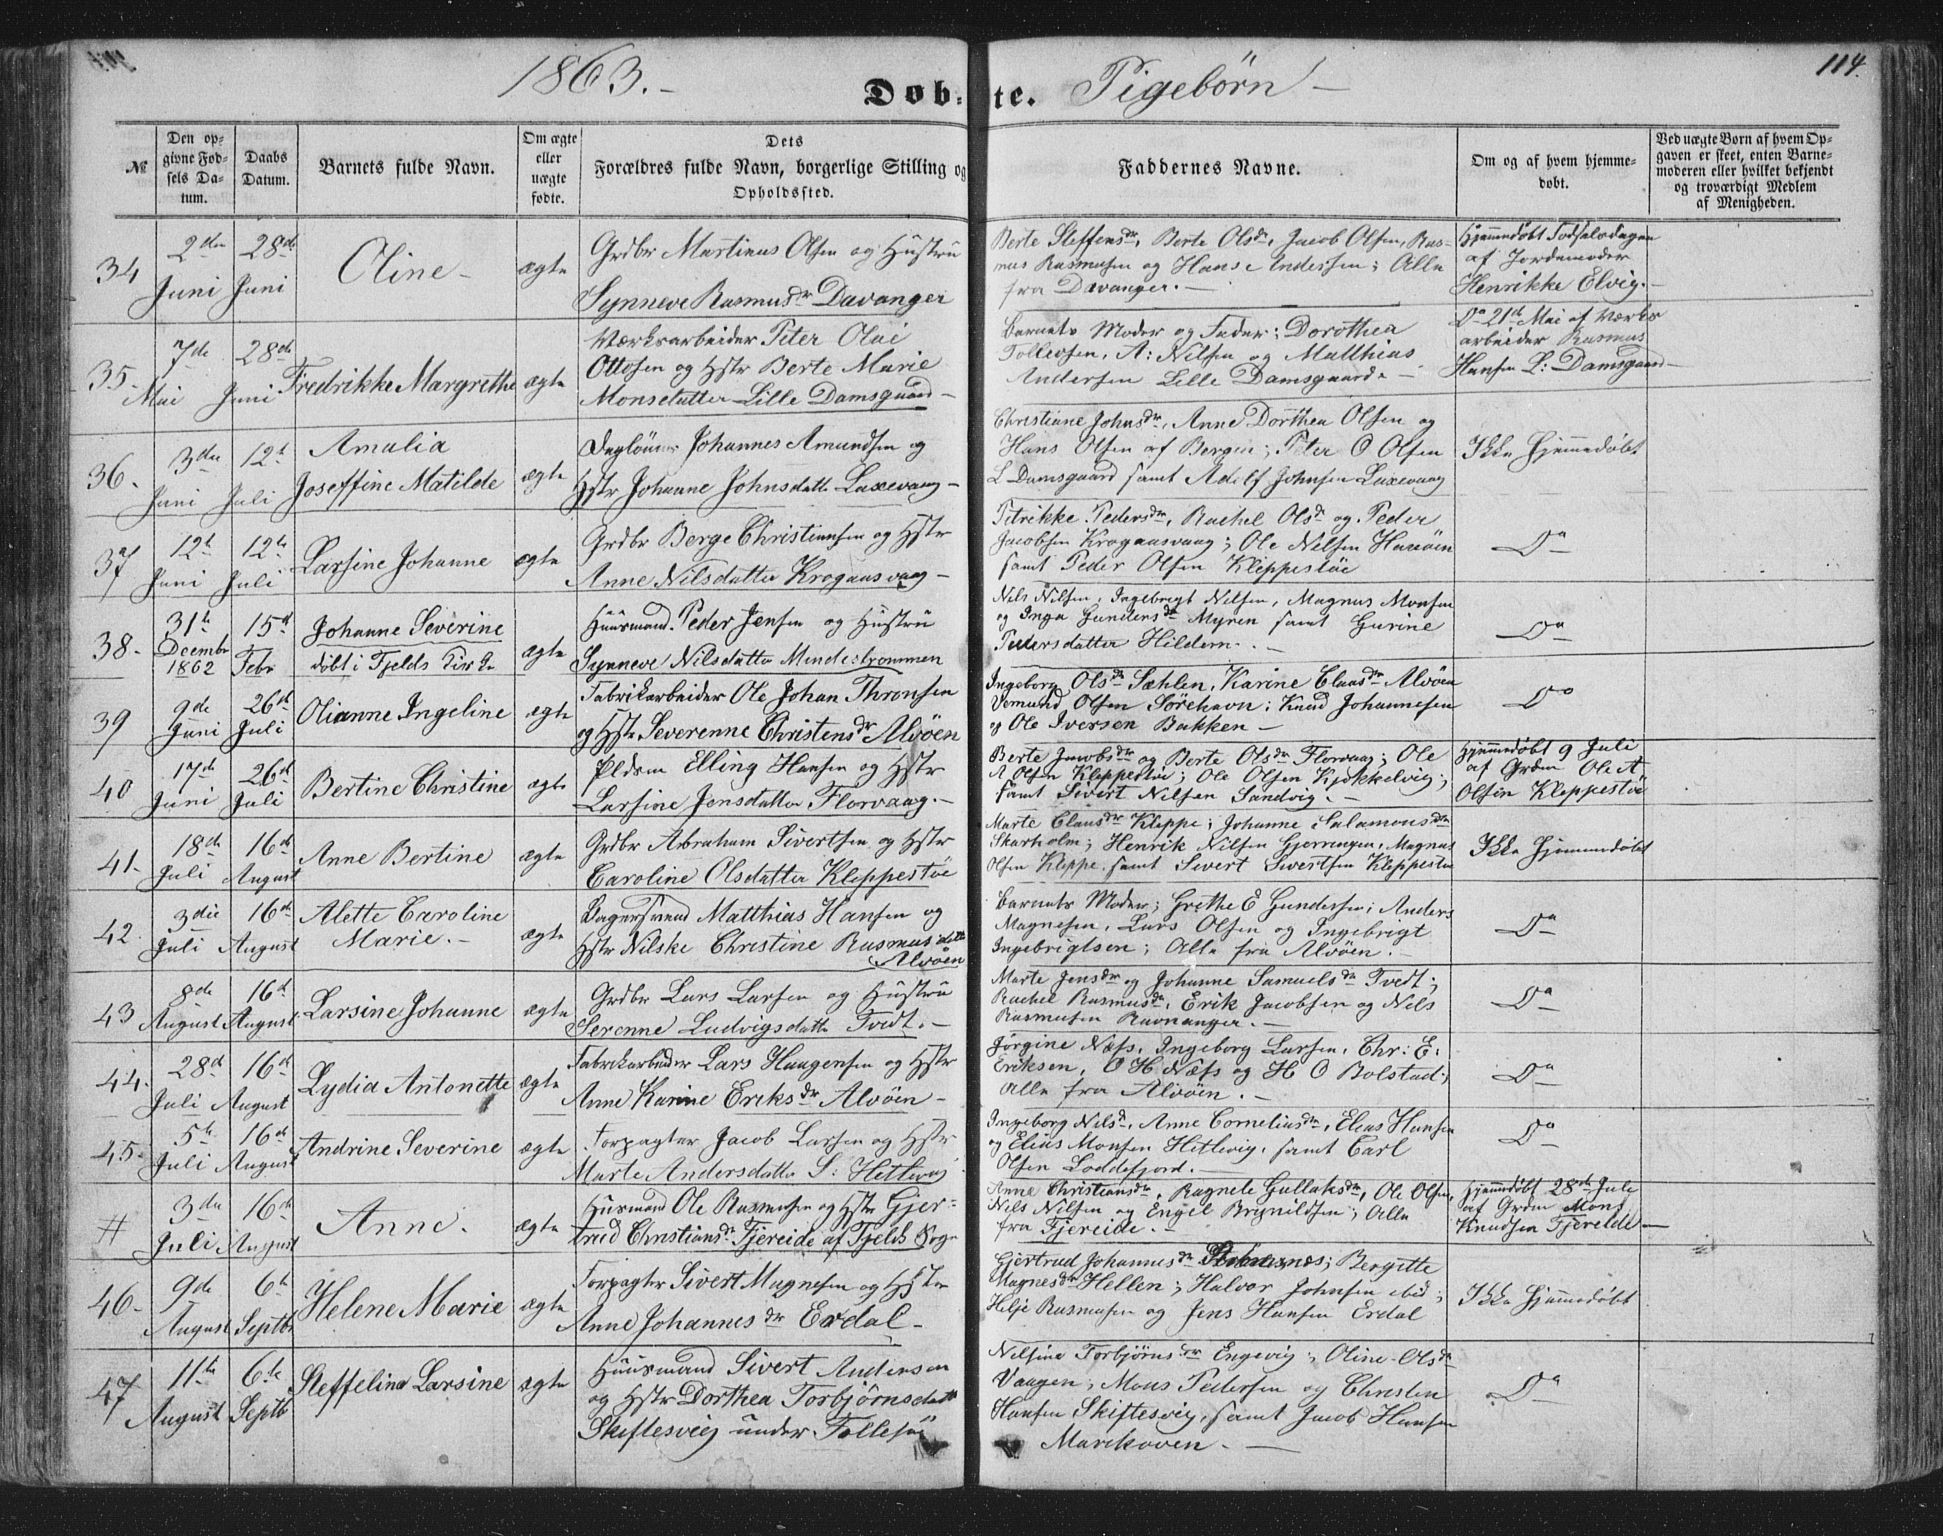 1863.-
Døb-te. Pigebørn -
114.
№
Den op-
givne Fød-
sels Da-
tum.
Daabs
Datum.
Barnets fulde Navn.
Om ægte
eller
uægte
fødte.
Dets
Forældres fulde Navn, borgerlige Stilling og
Opholdssted.
Faddernes Navne.
Om og af hvem hjemme-
døbt.
Ved uægte Børn af hvem Op-
gaven er skeet, enten Barne-
moderen eller hvilket bekjendt
og troværdigt Medlem
af Menigheden.
34
2den
Juni
28de
Juni
Oline -
ægte
Grdbr Martinus Olsen og Hustru
Synneve Rasmusdr Davanger
Berte Steffensdr, Berte Olsdr, Jacob Olsen, Ras-
mus Rasmusen og Hans Andersen; Alle
fra Davanger. -
Hjemmedøbt Fødselsdagen
af Jordemoder
Henrikke Elvig. -
35.
7de
Mai
28de
Juni
Fredrikke Margrethe
ægte
Værksarbeider Peter Olai
Ottosen og Hstr Berte Marie
Monsdatter Lille Damsgaard -
Barnets Moder og Fader; Dorothea
Tollevsen, A: Nilsen og Matthias
Andersen Lille Damsgaard. -
Do 21de Mai af Værks
arbeider Rasmus
Hansen L: Damsgaard -
36.
3den
Juni
12te
Juli
Amalia
Joseffine Matilde
ægte
Daglønner Johannes Amundsen og
Hstr Johanne Johnsdatter Laxevaag -
Christiane Johnsdr, Anne Dorthea Olsen og
Hans Olsen af Bergen; Peter O Olsen
L Damsgaard samt Adolf Johnsen Laxevaag
Ikke Hjemmedøbt
37
12te
Juni
12te
Juli
Larsine Johanne
ægte
Grdbr Berge Christiansen og Hstr
Anne Nilsdatter Krogaasvaag -
Petrikke Pedersdr, Rachel Olsdr og Peder
Jacobsen Krogaasvaag; Ole Nilsen Hanøen
samt Peder Olsen Kleppestøe
Do
38.
31te
Decembr
1862
15de
Febr
Johanne Severine
døbt i Fjelds Kirke
ægte
Huusmand Peder Jensen og Hustru
Synneve Nilsdatter Mindestrømmen
Nils Nilsen, Ingebrigt Nilsen, Magnus Monsen
og Inga Gundersdr Myren samt Gurine
Pedersdatter Hildern. -
Do
39
9de
Juni
26de
Juli
Olianne Ingeline
ægte
Fabrikarbeider Ole Johan Thronsen
og Hstr Severenne Christensdr Alvøen
Ingeborg Olsdr Sæhlen, Karine Clausdr Alvøen
Vemund Olsen Sørehavn; Knud Johannesen
og Ole Iversen Bakken -
Do
40
17de
Juni
26de
Juli
Bertine Christine
ægte
Pldsm Elling Hansen og Hstr
Larsine Jensdatter Florvaag. -
Berte Jacobsdr og Berte Olsdr Florvaag; Ole
A Olsen Kleppestøe; Ole Olsen Kjøkkelvig;
samt Sivert Nilsen Sandvig. -
Hjemmedøbt 9 Juli
af Grdm Ole A
Olsen Kleppestøe
41.
18de
Juli
16de
August
Anne Bertine
ægte
Grdbr Abraham Sivertsen og Hstr
Caroline Olsdatter Kleppestøe
Marte Clausdr Kleppe; Johanne Salamonsdr
Skarholm; Henrik Nilsen Gjerningen, Magnus
Olsen Kleppe samt Sivert Sivertsen Kleppestøe
Ikke Hjemmedøbt
42.
3die
Juli
16de
August
Alette Caroline
Marie. -
ægte
Bagersvend Matthias Hansen og
Hstr Nilske Christine Rasmusdatter
Alvøen
Barnets Moder; Grethe E Gundersen; Anders
Magnesen, Lars Olsen og Ingebrigt
Ingebrigtsen; Alle fra Alvøen. -
Do
43
8de
August
16de
August
Larsine Johanne
ægte
Grdbr Lars Larsen og Hustru
Serenne Ludvigsdatter Tvedt. -
Marte Jensdr og Johanne Samuelsdr Tvedt;
Rachel Rasmusdr, Erik Jacobsen og Nels
Rasmusen Ravnanger. -
Do
44.
28de
Juli
16de
August
Lydia Antonette
ægte
Fabrikarbeider Lars Haagensen og Hstr
Anne Karine Eriksdr Alvøen -
Jørgine Næss, Ingeborg Larsen, Chr: E:
Eriksen, O H Næss og H O Bolstad;
Alle fra Alvøen. -
Do
45.
5te
Juli
16de
August
Andrine Severine
ægte
Forpagter Jacob Larsen og Hstr
Marte Andersdatter S: Hetlevig
Ingeborg Nilsd, Anne Corneliusdr, Elias Hansen
og Elias Monsen Hetlevig, samt Carl
Olsen Loddefjord. -
Do
#
3die
Juli
16de
August
Anne.
ægte
Husmand Ole Rasmusen og Hstr Gjer-
trud Christiansdr Fjereide af Fjelds Sogn
Anne Christiansdr, Ragnele Gullaksdr, Ole Olsen,
Nils Nilsen og Engel Brynildsen; Alle
fra Fjereide. -
Hjemmedøbt 28de Juli
af Grdm Mons
Knudsen Fjereide -
46.
9de
August
6te
Septbr
Helene Marie
ægte
Forpagter Sivert Magnesen og Hstr
Anne Johannesdr Erdal -
Gjertrud Johannesdr; Bergitte
Magnesdr Hellen; Halvor Johnsen ibid;
Helje Rasmusen og Jens Hansen Erdal
Ikke Hjemmedøbt
47
11te
August
6te
Septb
Steffelina Larsine
ægte
Huusmand Sivert Andersen
og Hstr Dorthea Torbjørnsdatter
Skiftesvig under Follesøe
Nelsine Torbjørnsdr Engevig; Oline Olsdr
Vaagen; Mons Pedersen og Christen
Hansen Skiftesvig, samt Jacob Hansen
Marikoven. -
Do